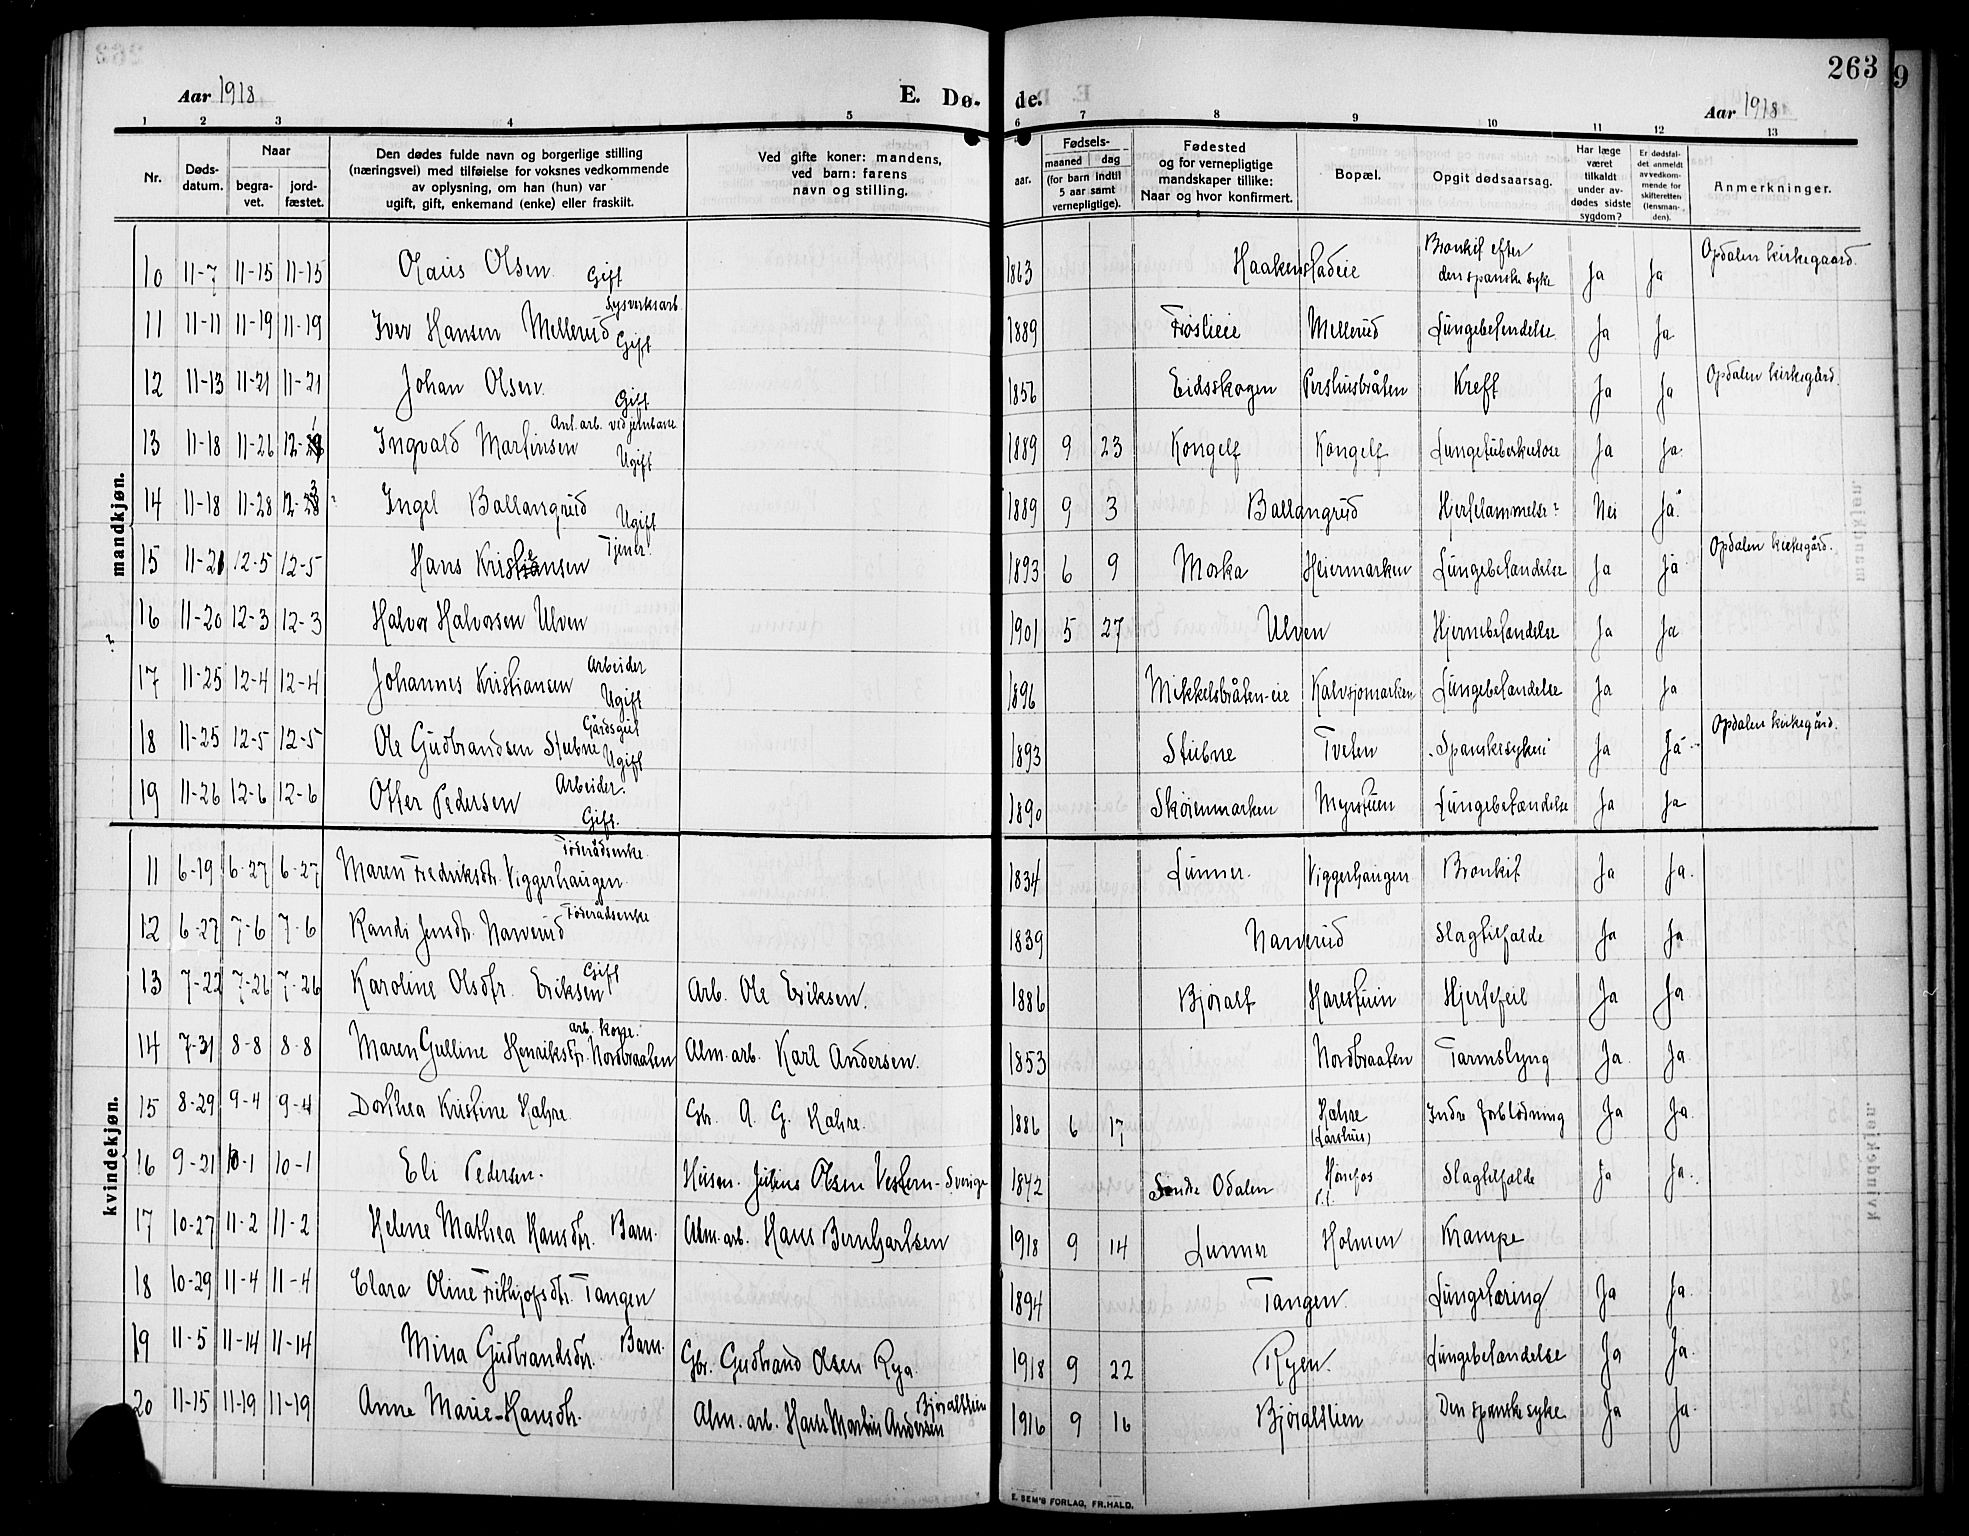 263
Aar 1918
E. Dø-
de.
Aar 1918
263
9
1 2 3 4 5 6 7 8 9 10 11 12 13
Nr.
Døds-
datum.
Naar
begra-
vet.
jord-
fæstet.
Den dødes fulde navn og borgerlige stilling
(næringsvei) med tilføielse for voksnes vedkommende
av oplysning, om han (hun) var
ugift, gift, enkemand (enke) eller fraskilt.
Ved gifte koner: mandens,
ved barn: farens
navn og stilling.
Fødsels-
aar.
maaned dag
(for barn indtil
5 aar samt
vernepligtige).
Fødested
og for vernepligtige
mandskaper tillike:
Naar og hvor konfirmert.
Bopæl.
Opgit dødsaarsag.
Har læge
været
tilkaldt
under av-
dødes sidste
sygdom?
Er dødsfal-
det anmeldt
av vedkom-
mende for
skifteretten
(lensman-
den).
Anmerkninger.
mandkjøn.
10 11-7 11-15 11-15 Olaus Olsen Gift 1863 Haakenstadeie Bronkit efter den spanske syke Ja Ja Opdalen kirkegaard.
11 11-11 11-19 11-19 Iver Hansen Mellerud Lysverksarb. Gift 1889 Frøslieie Mellerud Lungebetendelse Ja Ja
12 11-13 11-21 11-21 Johan Olsen Gift 1857 Eidsskogen Pershusbråten Kreft Ja Ja Opdalen kirkegård.
13 11-18 11-26 Ingvald Martinsen Anl. arb. ved jernbane Ugift 1889 9 23 Kongelf Kongelf Lungetuberkulose Ja Ja.
14 11-18 11-28 Ingel Ballangrud Ugift 1889 9 3 Ballangrud Hjertelammelse? Nei Ja.
15 11-21 12-5 12-5 Hans Kristiansen Tjener. 1893 6 9 Moska Heiermarken Lungebetandelse Ja Ja Opdalen kirkegård.
16 11-20 12-3 12-3 Halvor Halvorsen Ulven 1901 5 27 Ulven Hjernebetandelse Ja Ja
17 11-25 12-4 12-4 Johannes Kristiansen Arbeider Ugift 1896 Mikkelsbråten-eie Kalvsjomarken Lungebetandelse Ja Ja
18 11-25 12-5 12-5 Ole Gudbrandsen Stubne Gårdsgut Ugift 1893 Stubne Tveten Spanskesyken Ja Ja Opdalen kirkegård.
19 11-26 12-6 12-6 Otter Pedersen Arbeider. Gift. 1890 Skøienmarken Myrstuen Lungebetændelse Ja Ja
kvindekjøn.
11 6-19 6-27 6-27 Maren Fredriksdtr. Viggerhaugen. Føderådsenke 1834 Lunner. Viggerhaugen Bronkit Ja Ja.
12 6-27 7-6 7-6 Randi Jensdtr. Narverud Føderådsenke 1839 Narverud Slagtilfalde Ja Ja
13 7-22 7-26 7-26 Karoline Olsdtr. Eriksen Gift Arb. Ole Eriksen. 1886 Bjøralt Harestuin Hjertefeil Ja Ja.
14 7-31 8-8 8-8 Maren Gulline Henriksdtr. Nordbraaten arb. kone. Alm. arb. Karl Andersen. 1853 Nordbraaten Tarmslyng Ja. Ja.
15 8-29 9-4 9-4 Dorthea Kristine Hahre Gbr. A. G. Hahre. 1886 6 17 Hahre (Larshus) Indre forblødning Ja Ja.
16 9-21 10-1 10-1 Eli Pedersen. Husm. Julius Olsen Vestern-Sverige 1842 Søndre Odalen Hønefos Slagtilfalde Ja Ja.
17 10-27 11-2 11-2 Helene Mathea Hansdtr. Barn. Alm. arb. Hans Bernhartsen 1918 9 14 Lunner Holmen Krampe
18 10-29 11-4 11-4 Clara Oline Frithjofsdtr. Tangen 1894 Tangen. Lungetæring Ja Ja.
19 11-5 11-14 11-14 Mina Gudbrandsdtr. Barn. Gbr. Gudbrand Olsen Rya 1918 9 22 Ryen. Lungebetandelse Ja Ja.
20 11-15 11-19 11-19 Anne Marie Hansdtr. Alm. arb. Hans Martin Andersen Bjøraltlien 1916 9 16 Bjøraltlien Den spanske syke Ja Ja.
E. SEM'S FORLAG, FR.HALD.